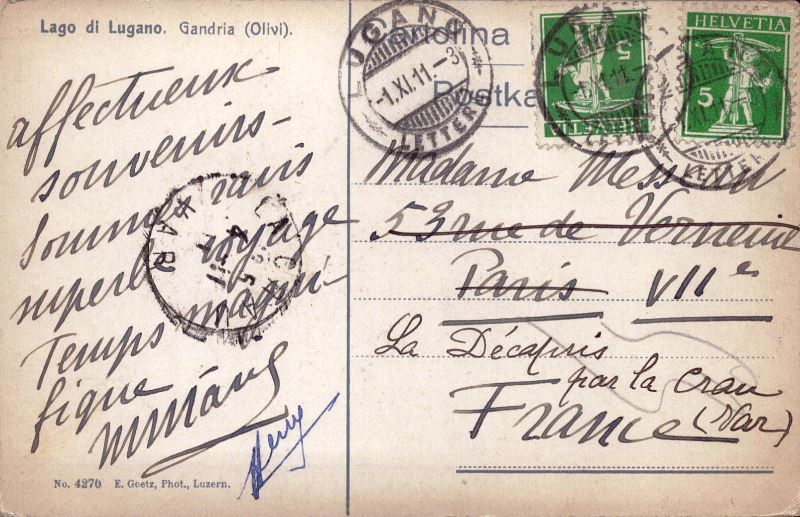 Lago di Lugano. Gandria (Olivi).
affectueux
souvenirs-
Sommes ravis
superbe voyage
Temps magni-
fique
No. 4270 E. Goetz, Phot., Luzern.
Cartolina
Postka
LUGANO
-1.XI.11.-3
LETTERE
HELVETIA
5
5
Madame
53 rue de Verneuil
Paris VIIe
La Décapris
par la Crau
France (Var)
VAR